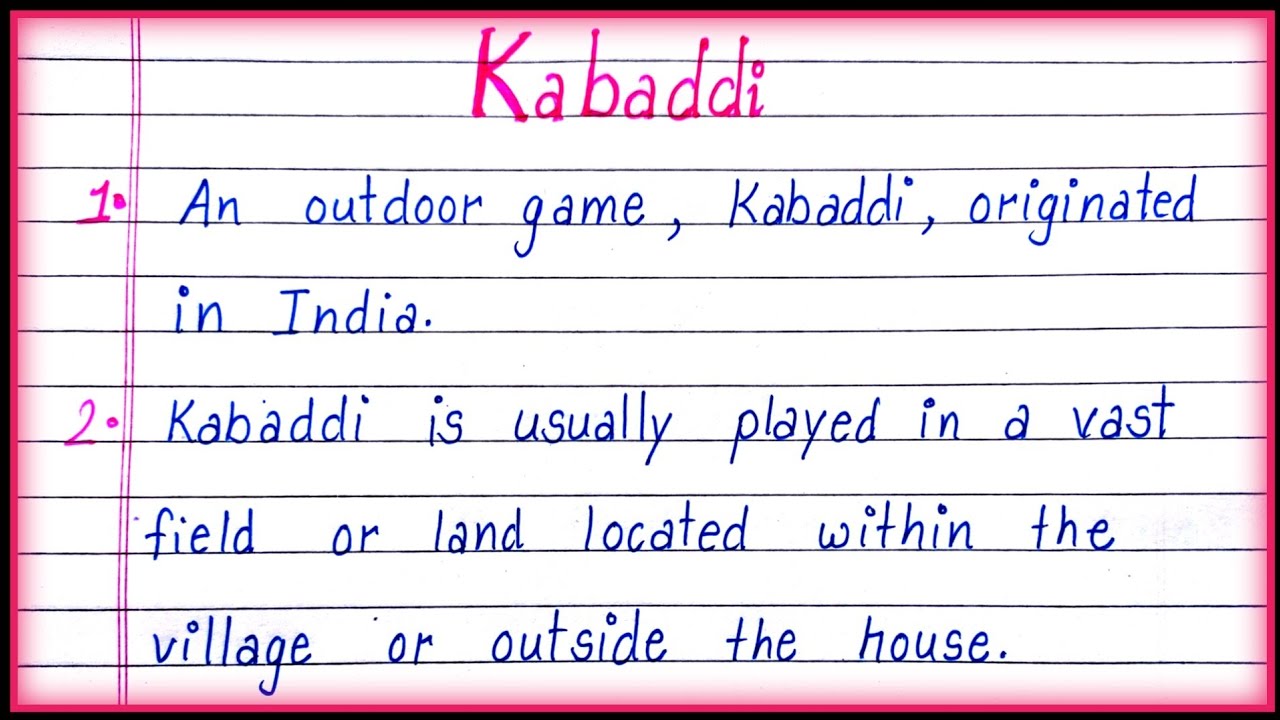 Kabaddi
1. An outdoor game, Kabaddi, originated
in India.
2. Kabaddi is usually played in a vast
field or land located within the
village or outside the house.